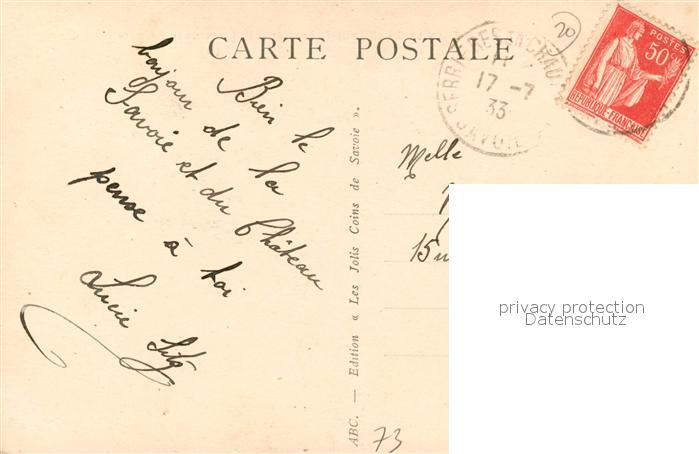 CARTE POSTALE
20
SERRIERES EN CHAU
17-7
33
SAVOIE
POSTES
50c
REPUBLIQUE-FRANÇAISE
Bien le
bonjour de la
Savoie et du Château
pense à toi
Lucie
ABC. — Edition « Les Jolis Coins de Savoie ».
Melle
15
73
privacy protection
Datenschutz